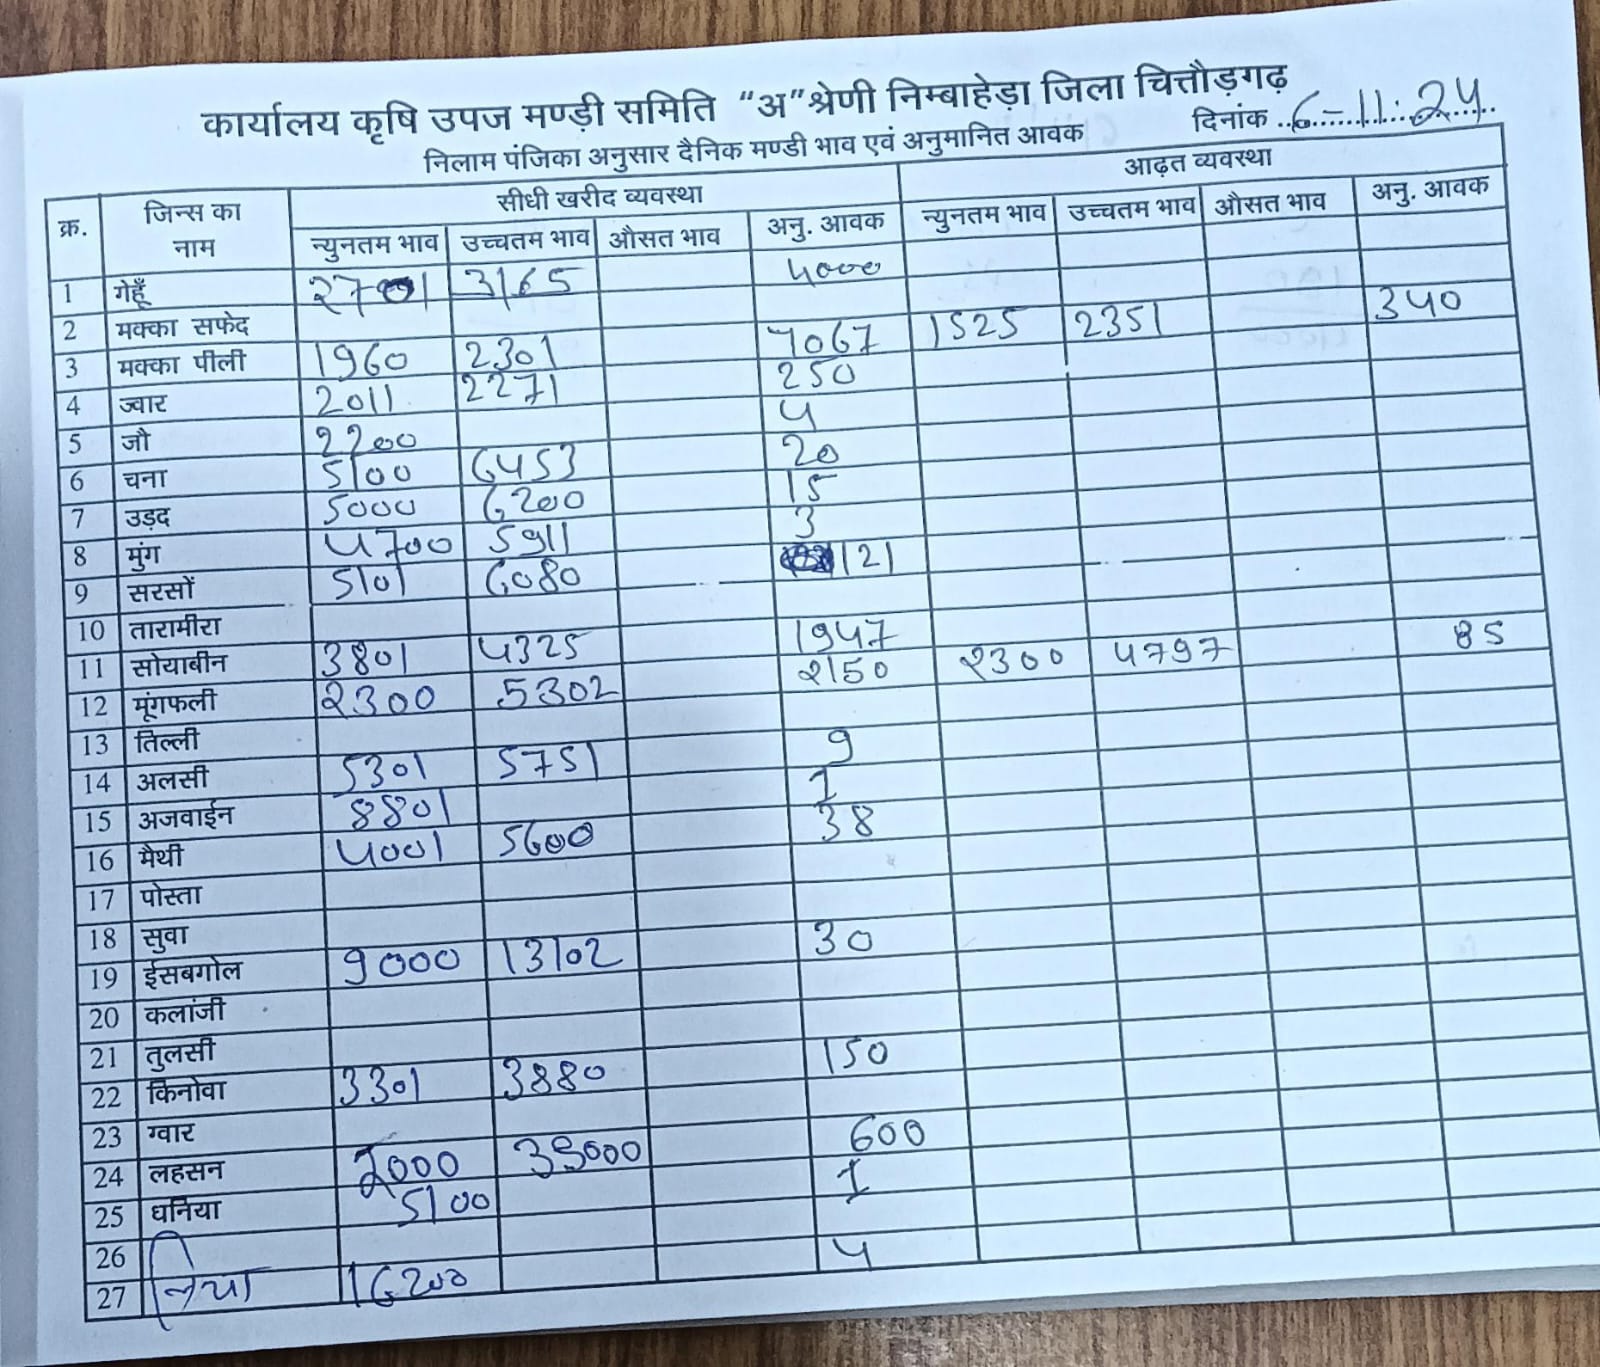 कार्यालय कृषि उपज मण्ड़ी समिति "अ" श्रेणी निम्बाहेड़ा जिला चित्तौड़गढ़
दिनांक 6-11-24
निलाम पंजिका अनुसार दैनिक मण्डी भाव एवं अनुमानित आवक
क्र. जिन्स का नाम सीधी खरीद व्यवस्था आढ़त व्यवस्था
न्युनतम भाव उच्चतम भाव औसत भाव अनु. आवक न्युनतम भाव उच्चतम भाव औसत भाव अनु. आवक
1 गेहूँ 2701 3165 4000
2 मक्का सफेद
3 मक्का पीली 1960 2301 7067 1525 2351 340
4 ज्वार 2011 2271 250
5 जौ 2200 4
6 चना 5100 6453 20
7 उड़द 5000 6200 15
8 मुंग 4700 5911 3
9 सरसों 5101 6080 121
10 तारामीरा
11 सोयाबीन 3801 4325 1947
12 मूंगफली 2300 5302 2150 2300 4797 85
13 तिल्ली
14 अलसी 5301 5751 9
15 अजवाईन 8801 1
16 मैथी 4001 5600 38
17 पोस्ता
18 सुवा
19 ईसबगोल 9000 13102 30
20 कलांजी
21 तुलसी
22 किनोवा 3301 3880 150
23 ग्वार
24 लहसन 7000 35000 600
25 धनिया 5100 1
26
27 16200 4